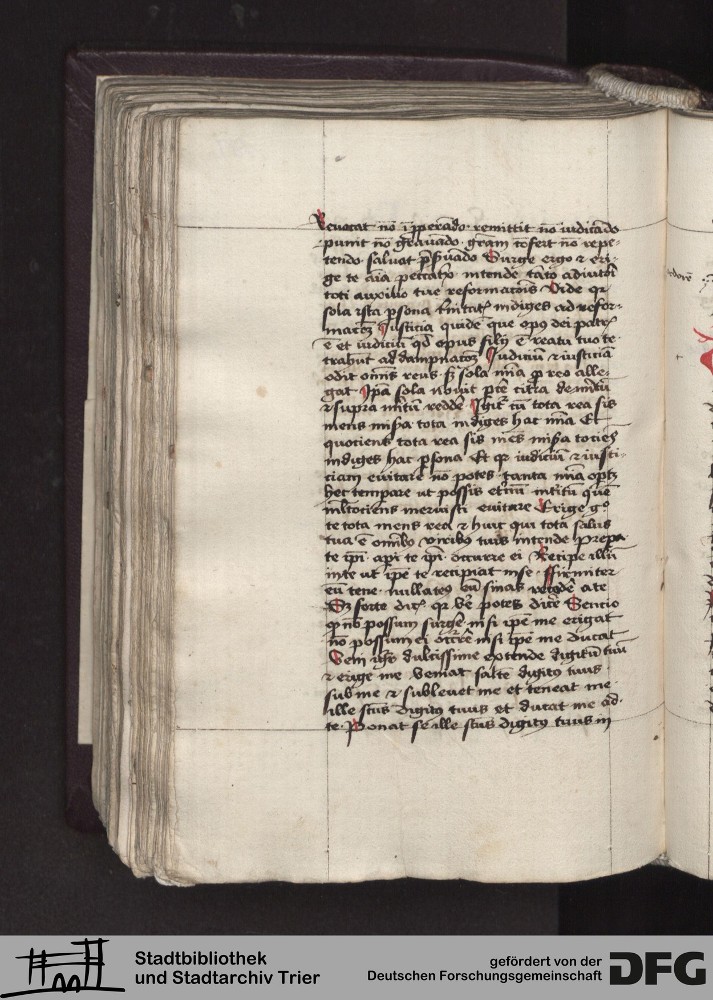 Reuocat nō īpperādo· remittit nō iudicādo
punit nō grauādo· grām cōfert nō repe-
tendo· saluat psuādo Surge ergo ⁊ eri-
ge te aīa peccatꝛ intende tāto adiutori
toti auxilio tue reformatōis Vide qꝛ
sola ista psona indiges ad refor-
matōꝫ Justicia quidē que opꝰ dei patrꝭ
ē et iudiciū qd opus filij ē reatu tuo te
trahūt ad dampnatōꝫ Judiciū ⁊ iusticiā
odit omīs reus· sꝫ sola mīa ꝓ reo alle-
gat Ipā sola nouit pctē citra demītū
⁊ supra mītū reddē Igit cū tota rea sis
mens misa tota indiges hac mīa Et
quociens tota rea sis mēs misa tociēs
indiges hac psona Et qꝛ iudiciū ⁊ iusti-
ciam euitare nō potes· tanta mīa optꝫ
hec tempare ut possis etiū intitū quē
mltociens meruisti euitare Erige gº
te tota mens rea ⁊ huic qui tota salus
tua ē omībꝰ viribꝰ tuis intende prepa-
te ipī· api te ipī· occurre ei Recipe illū
in te ut ipē te recipiat in se· ffirmiter
eū tene· nullatꝰ eū sinas recedē a te
Sꝫ forte dicꝭ qꝛ bē potes dicē Sencio
ꝙ nō possum surgē nisi ipē me erigat
nō possum ei occrē nisi ipē me ducat
Veni ihū dulcissime extende digitū tuū
⁊ erige me Veniat saltē digitꝰ tuus
sub me ⁊ subleuet me et teneat me
ille scūs digitꝰ tuus et ducat me ad
te· Ponat se ille scūs digitꝰ tuus in
Stadtbibliothek
und Stadtarchiv Trier
gefördert von der
Deutschen Forschungsgemeinschaft
DFG